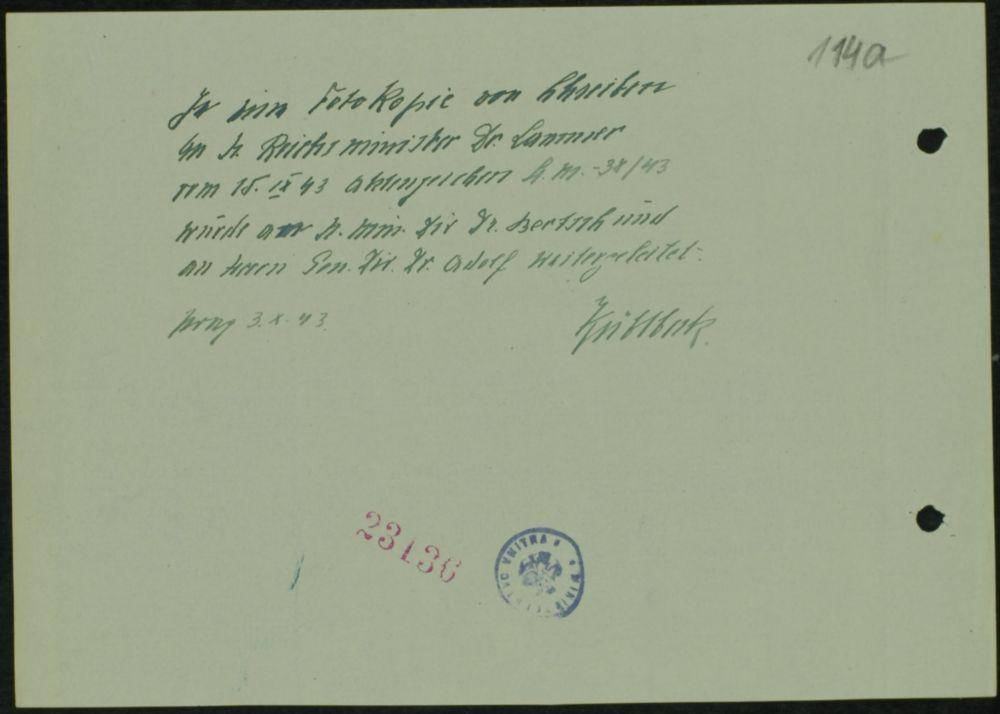 114a
Je eine Fotokopie von Schreiben
an H. Reichsminister Dr. Lammer
vom 15. IX 43 Aktenzeichen St. M. -38/43
wurde an H. Min. Dir Dr. Bertsch und
an Herrn Gen. Dir. Dr. Adolf weitergeleitet.
Prag 3. X. 43.
23136
MINISTERSTVO VNITRA